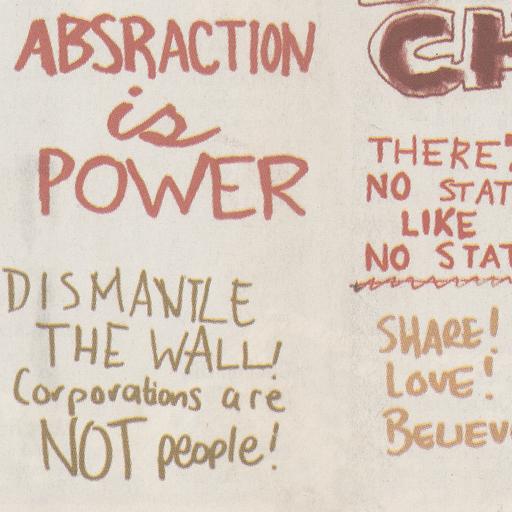 ABSRACTION
is
POWER
DISMANTLE
THE WALL!
Corporations are
NOT people!
CH
THERE'S
NO STAT
LIKE
NO STAT
SHARE!
LOVE!
BELIEV